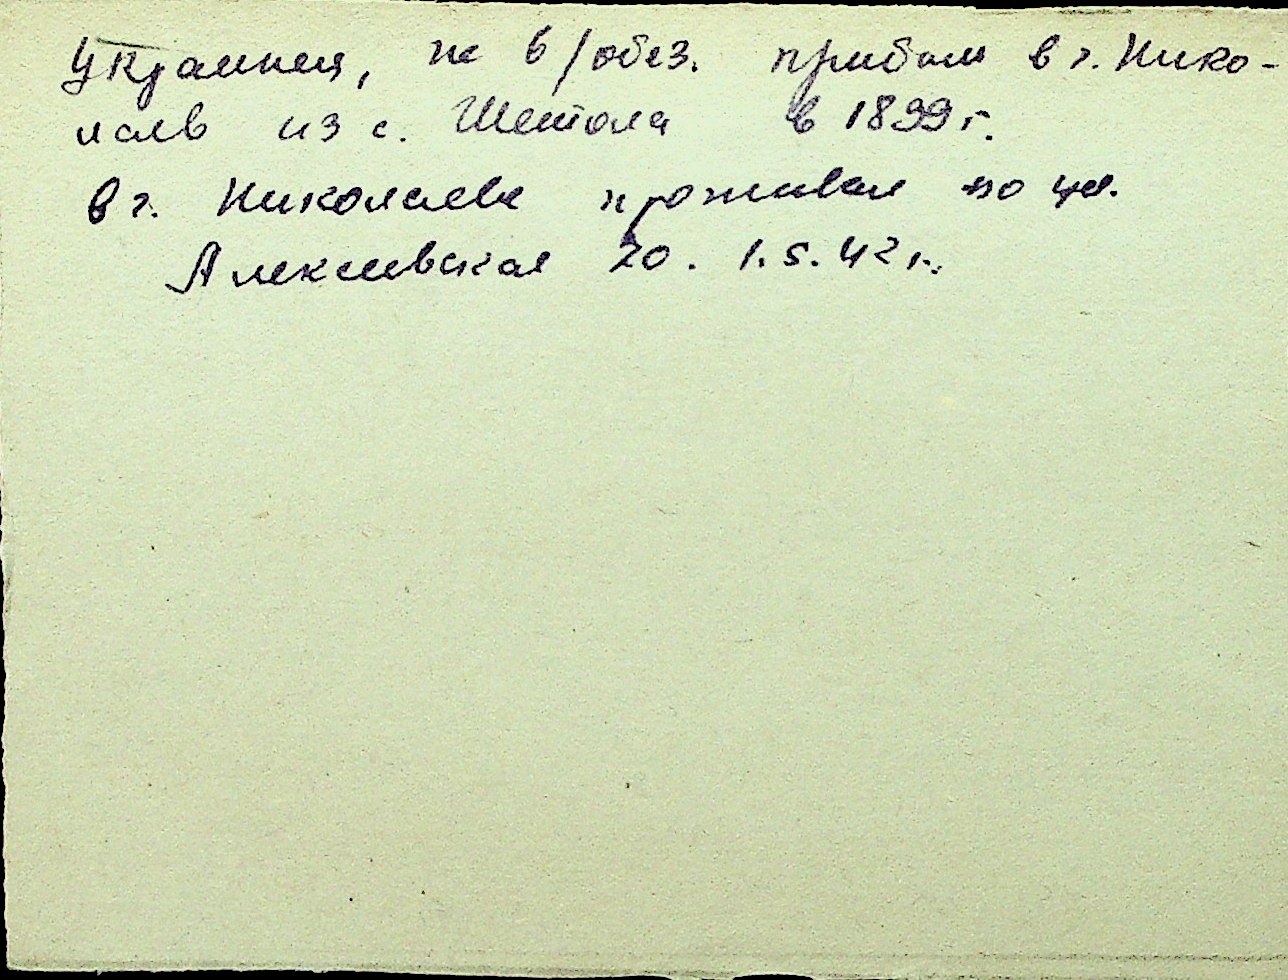 Украинец, не в/обяз. прибыл в г. Нико-
лаев из с. в 1899 г.
в г. Николаеве проживал по ул.
Алексеевская 20. 1.5.42 г.